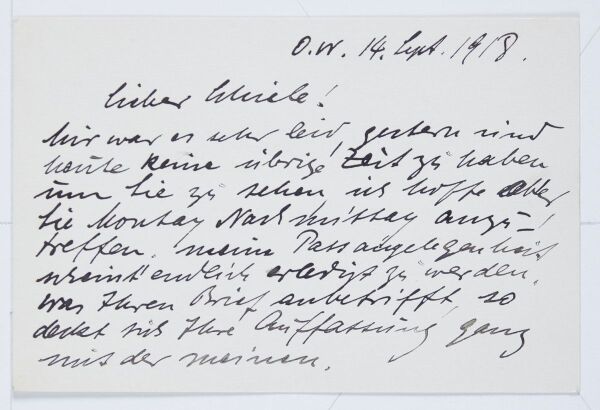 O.W. 14. Sept. 1918.
Lieber Schiele!
Mir war es sehr leid, gestern und
heute keine übrige Zeit zu haben
um Sie zu sehen ich hoffe aber
Sie Montag Nachmittag anzu-
treffen. meine Passangelegenheit
scheint endlich erledigt zu werden.
was Ihren Brief anbetrifft, so
deckt sich Ihre Auffassung ganz
mit der meinen.